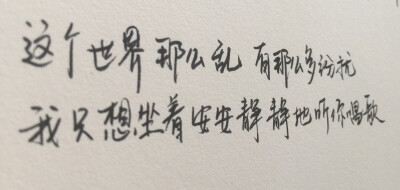 这个世界那么乱 有那么多纷扰
我只想坐着安安静静地听你唱歌